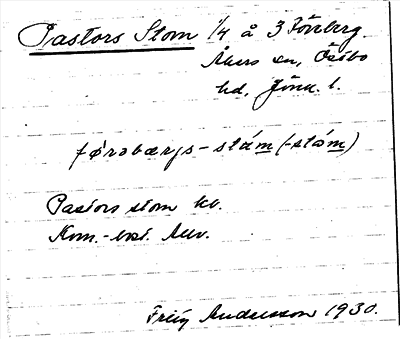 Pastors Stom 1/4 å 3 Föreberg
Åkers sn, Östbo
hd, Jönk. l.
førəbærjs-stám (-stám)
Pastors stom kv.
Kom.-best. Allv.
Frey Andersson 1930.